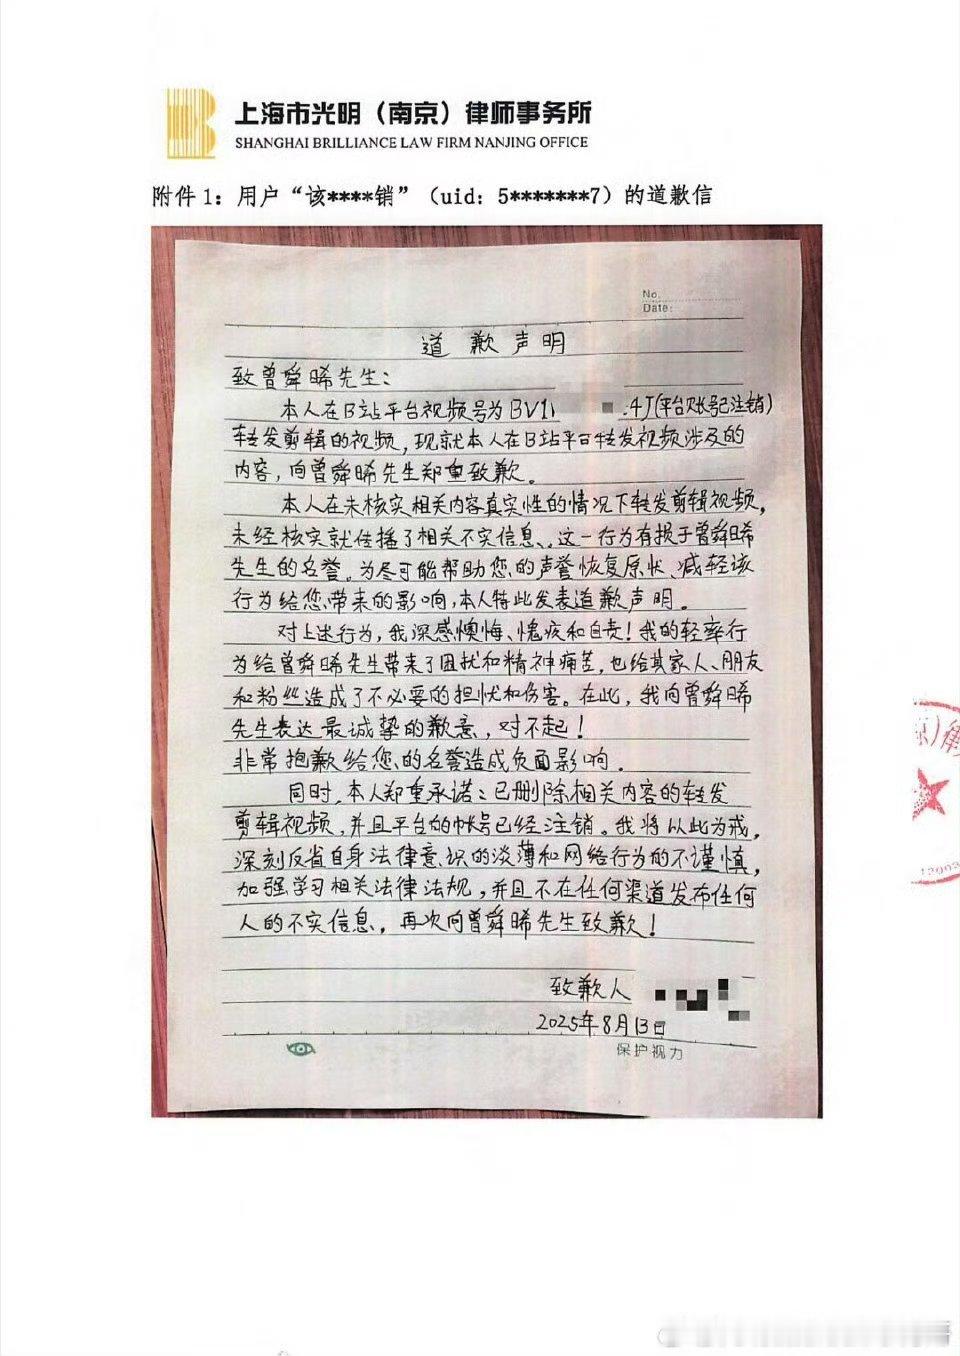 上海市光明（南京）律师事务所
SHANGHAI BRILLIANCE LAW FIRM NANJING OFFICE
附件1：用户“该****销”（uid：5*******7）的道歉信
No.
Date:
道歉声明
致曾舜晞先生：
本人在B站平台视频号为BV1 4J(平台账号已注销)
转发剪辑的视频，现就本人在B站平台转发视频涉及的
内容，向曾舜晞先生郑重致歉。
本人在未核实相关内容真实性的情况下转发剪辑视频，
未经核实就传播了相关不实信息、这一行为有损于曾舜晞
先生的名誉。为尽可能帮助您的声誉恢复原状、减轻该
行为给您带来的影响，本人特此发表道歉声明。
对上述行为，我深感懊悔、愧疚和自责！我的轻率行
为给曾舜晞先生带来了困扰和精神痛苦，也给其家人、朋友
和粉丝造成了不必要的担忧和伤害。在此，我向曾舜晞
先生表达最诚挚的歉意，对不起！
非常抱歉给您的名誉造成负面影响。
同时，本人郑重承诺：已删除相关内容的转发
剪辑视频，并且平台的帐号已经注销。我将以此为戒，
深刻反省自身法律意识的淡薄和网络行为的不谨慎，
加强学习相关法律法规，并且不在任何渠道发布任何
人的不实信息，再次向曾舜晞先生致歉！
致歉人
2025年8月13日
保护视力
京）律
12003